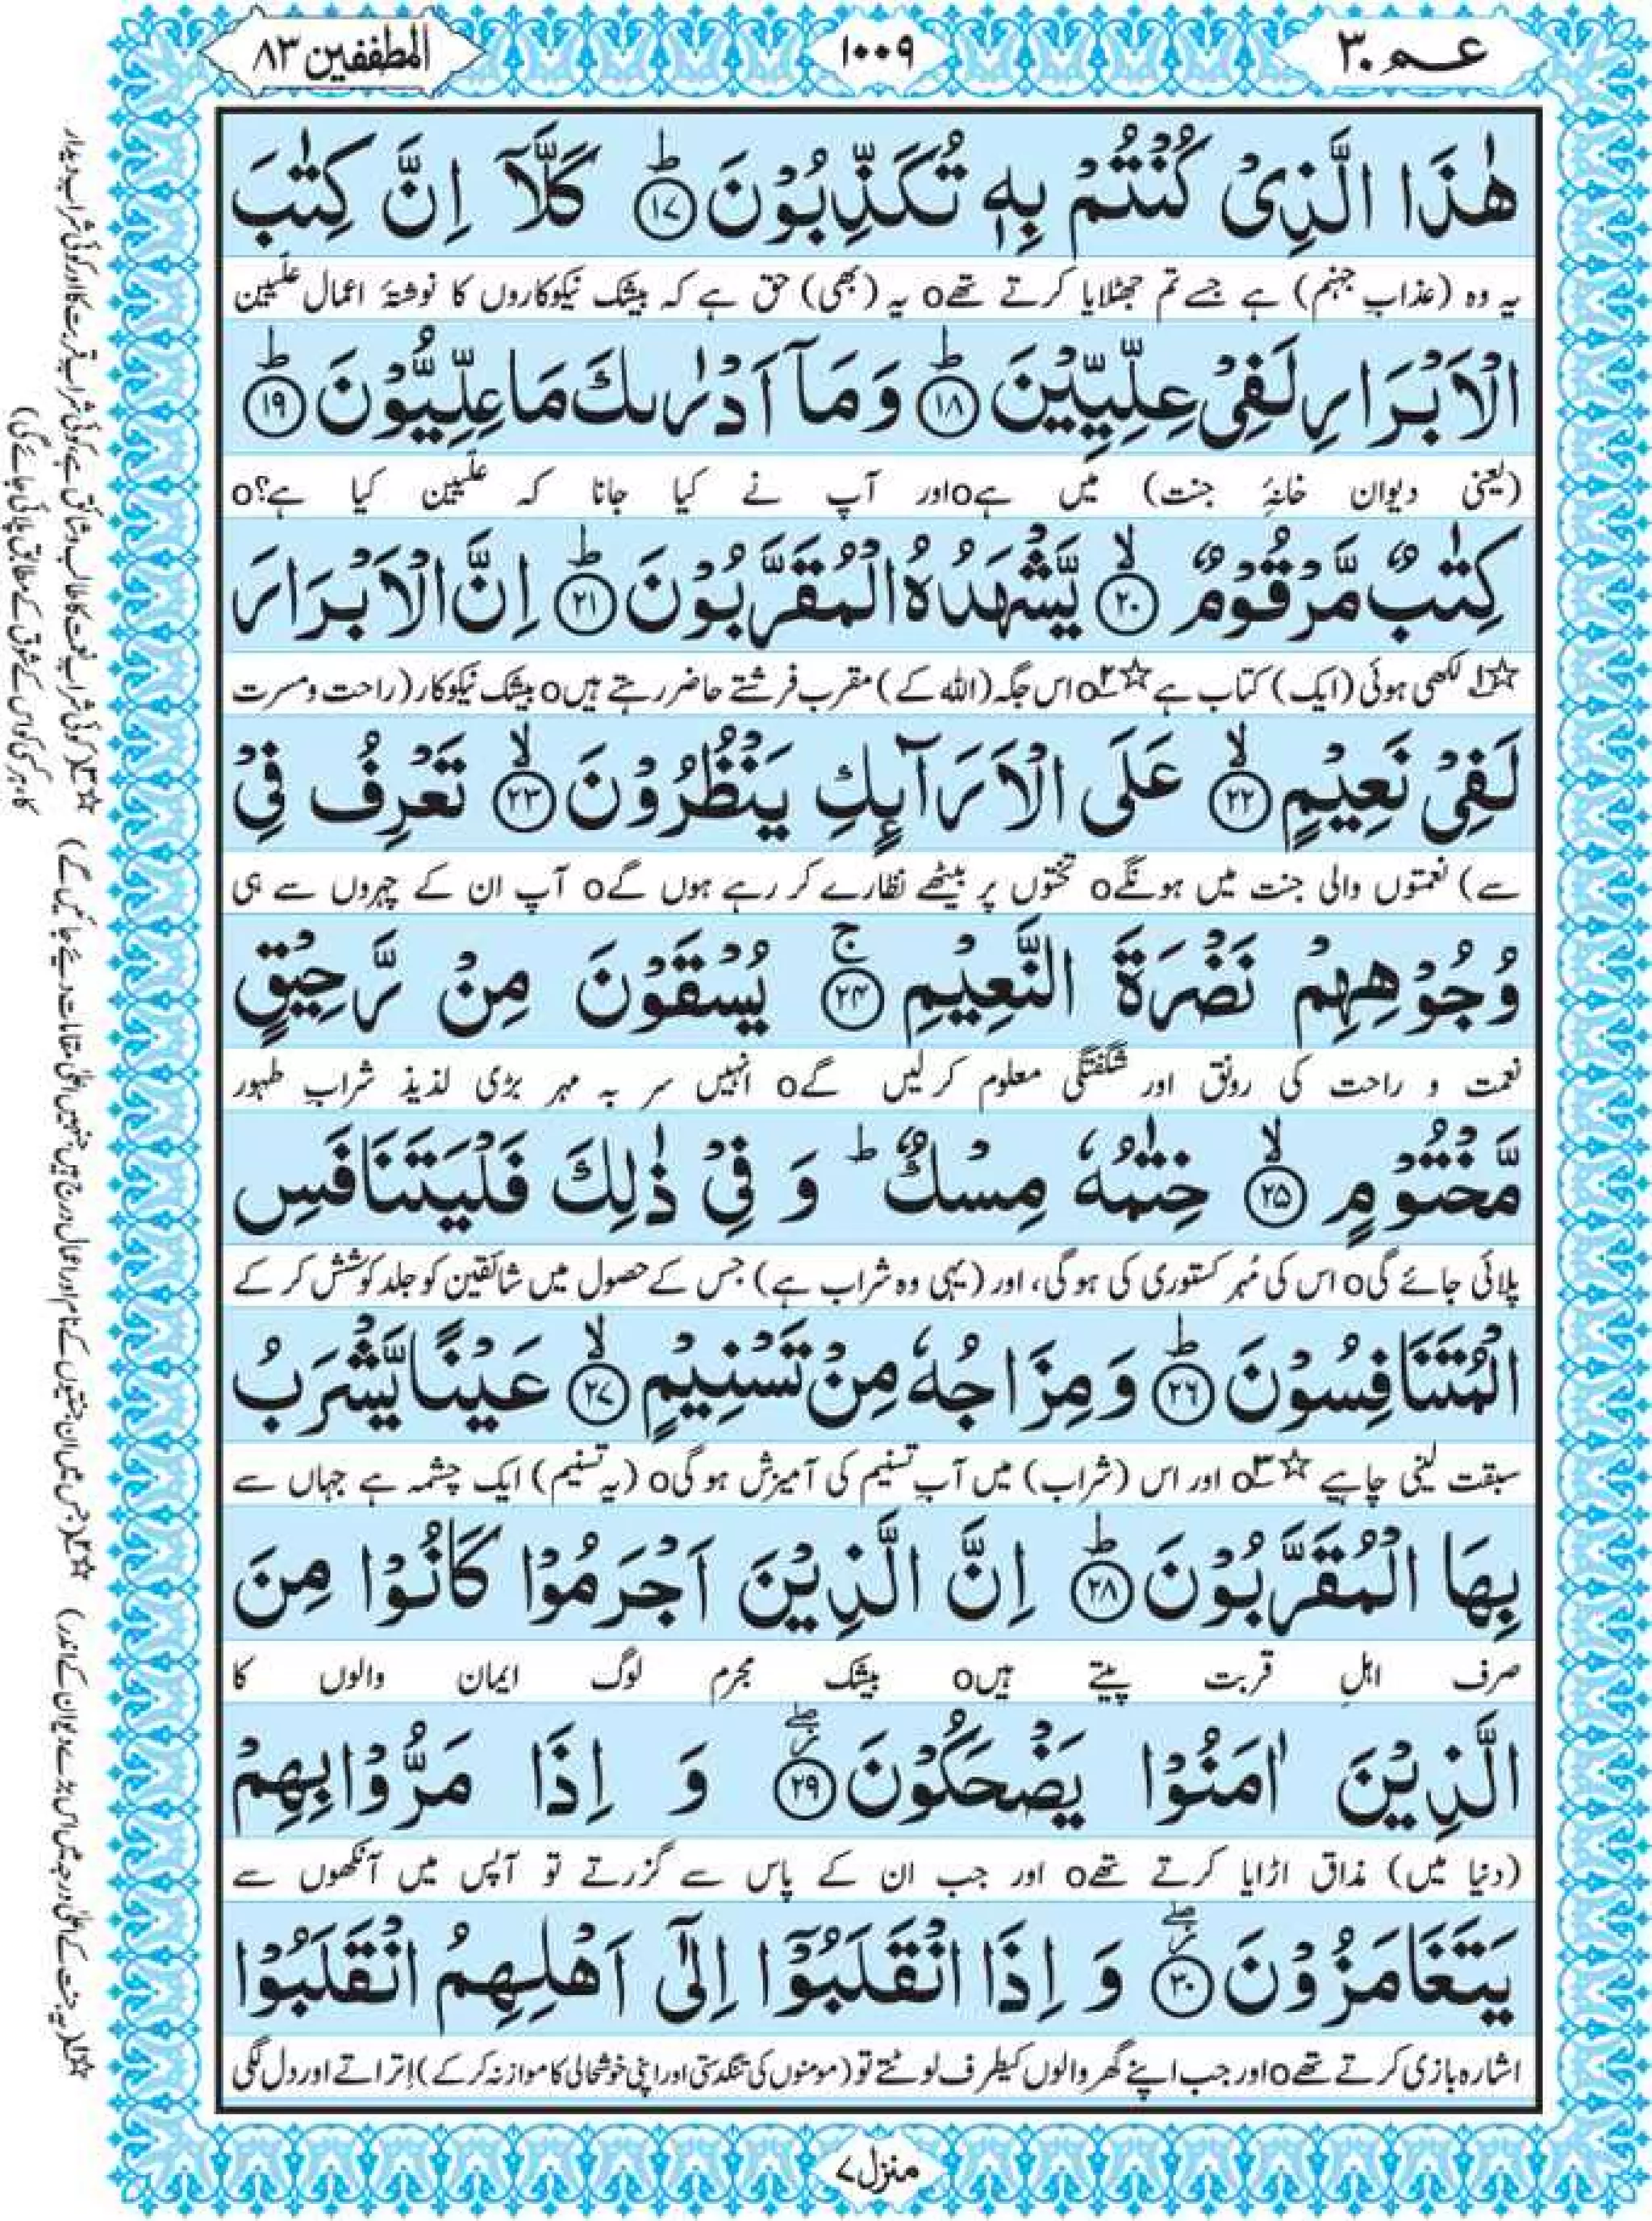 عم ۳۰
۱۰۰۹
المطففین ۸۳
هٰذَا الَّذِیْ كُنْتُمْ بِهٖ تُكَذِّبُوْنَ ؕ﴿۱۷﴾ كَلَّاۤ اِنَّ كِتٰبَ
یہ وہ (عذابِ جہنم) ہے جسے تم جھٹلایا کرتے تھےo یہ (بھی) حق ہے کہ بیشک نیکوکاروں کا نوشتۂ اعمال علّیین
الْاَبْرَارِ لَفِیْ عِلِّیِّیْنَ ؕ﴿۱۸﴾ وَ مَاۤ اَدْرٰىكَ مَا عِلِّیُّوْنَ ؕ﴿۱۹﴾
(یعنی دیوان خانۂ جنت) میں ہےo اور آپ نے کیا جانا کہ علّیین کیا ہے؟o
كِتٰبٌ مَّرْقُوْمٌ ۙ﴿۲۰﴾ یَّشْهَدُهُ الْمُقَرَّبُوْنَ ؕ﴿۲۱﴾ اِنَّ الْاَبْرَارَ
☆۱ لکھی ہوئی (ایک) کتاب ہے ☆۲o اس جگہ (اللہ کے) مقرب فرشتے حاضر رہتے ہیںo بیشک نیکوکار (راحت و مسرت
لَفِیْ نَعِیْمٍ ۙ﴿۲۲﴾ عَلَى الْاَرَآىِٕكِ یَنْظُرُوْنَ ۙ﴿۲۳﴾ تَعْرِفُ فِیْ
سے) نعمتوں والی جنت میں ہونگےo تختوں پر بیٹھے نظارے کر رہے ہوں گےo آپ ان کے چہروں سے ہی
وُجُوْهِهِمْ نَضْرَةَ النَّعِیْمِ ۚ﴿۲۴﴾ یُسْقَوْنَ مِنْ رَّحِیْقٍ
نعمت و راحت کی رونق اور شگفتگی معلوم کر لیں گےo انہیں سر بہ مہر بڑی لذیذ شرابِ طہور
مَّخْتُوْمٍ ۙ﴿۲۵﴾ خِتٰمُهٗ مِسْكٌ ؕ وَ فِیْ ذٰلِكَ فَلْیَتَنَافَسِ
پلائی جائے گیo اس کی مُہر کستوری کی ہوگی، اور (یہی وہ شراب ہے) جس کے حصول میں شائقین کو جلد کوشش کر کے
الْمُتَنَافِسُوْنَ ؕ﴿۲۶﴾ وَ مِزَاجُهٗ مِنْ تَسْنِیْمٍ ۙ﴿۲۷﴾ عَیْنًا یَّشْرَبُ
سبقت لینی چاہیے ☆۳o اور اس (شراب) میں آبِ تسنیم کی آمیزش ہوگیo (یہ تسنیم) ایک چشمہ ہے جہاں سے
بِهَا الْمُقَرَّبُوْنَ ؕ﴿۲۸﴾ اِنَّ الَّذِیْنَ اَجْرَمُوْا كَانُوْا مِنَ
صرف اہلِ قربت پیتے ہیںo بیشک مجرم لوگ ایمان والوں کا
الَّذِیْنَ اٰمَنُوْا یَضْحَكُوْنَ ۖ﴿۲۹﴾ وَ اِذَا مَرُّوْا بِهِمْ
(دنیا میں) مذاق اڑایا کرتے تھےo اور جب ان کے پاس سے گزرتے تو آپس میں آنکھوں سے
یَتَغَامَزُوْنَ ۖ﴿۳۰﴾ وَ اِذَا انْقَلَبُوْۤا اِلٰۤى اَهْلِهِمُ انْقَلَبُوْا
اشارہ بازی کرتے تھےo اور جب اپنے گھر والوں کیطرف لوٹتے تو (مومنوں کی تنگدستی اور اپنی خوشحالی کا موازنہ کر کے) اِتراتے اور دل لگی
منزل ۷
☆۱ (یہ جنت کے اعلیٰ درجہ میں اس بڑے دیوان کے اندر) ☆۲ (جس میں ان جنتیوں کے نام اور اعمال درج ہیں جنہیں اعلیٰ مقامات دیے جائیں گے) ☆۳ (کوئی شرابِ نعمت کا طالب و شائق ہے، کوئی شرابِ قربت کا اور کوئی شرابِ دیدار
کا۔ ہر کسی کو اس کے شوق کے مطابق پلائی جائے گی)